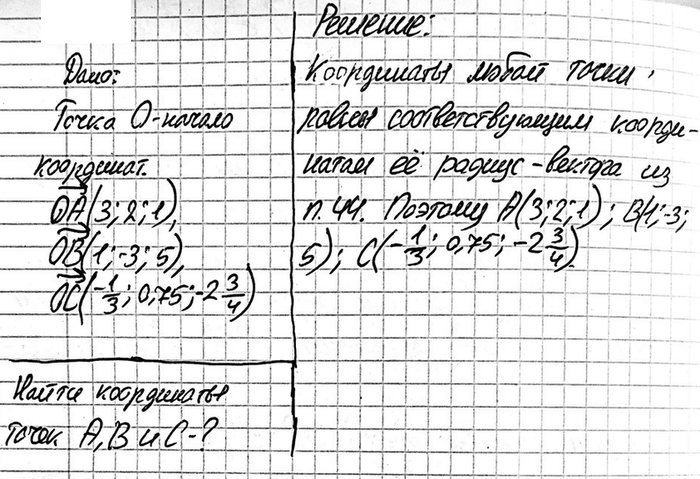 Дано:
Точка О-начало
координат.
OA(3; 2; 1),
OB(1; -3; 5),
OC(-1/3; 0,75; -2 3/4)
Найти координаты
точек A, B и C-?
Решение:
Координаты любой точки
равны соответствующим коорди-
натам её радиус-вектора из
п. 44. Поэтому A(3; 2; 1); B(1; -3;
5); C(-1/3; 0,75; -2 3/4)